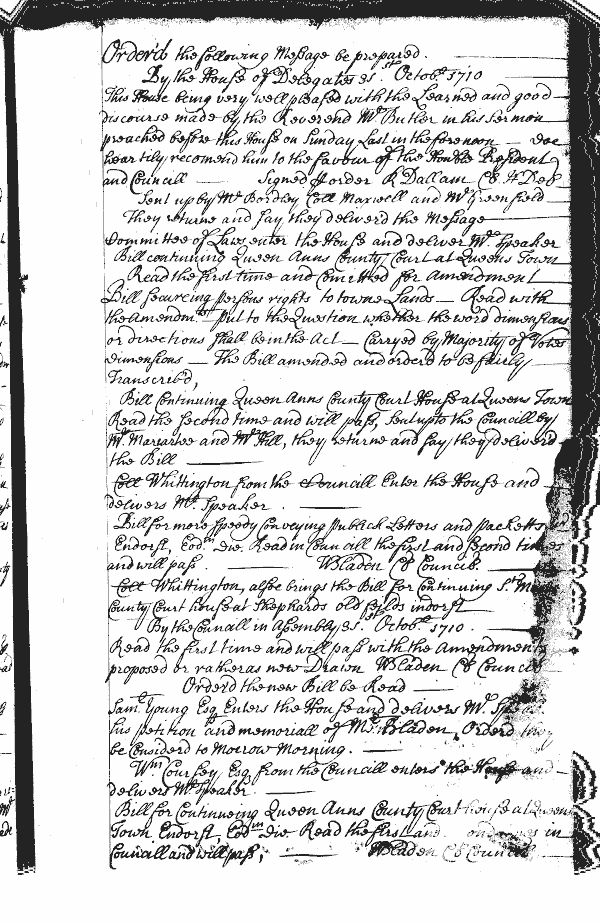 Order'd the following Message be prepared.
By the House of Delegates 31st Octobr 1710
This House being very well pleased with the Learned and good
discourse made by the Reverend Mr Butler in his Sermon
preached before this House on Sunday Last in the forenoon — doe
heartily recomend him to the favour of the Honble President
and Councill — Signed p order R Dallam Cl H Del
Sent up by Mr Bordley Coll Maxwell and Mr Greenfield
They returne and say they deliverd the Message
Committee of Laws enter the House and deliver Mr Speaker
Bill continuing Queen Anns County Court at Queens Town
Read the first time and Comitted for Amendment
Bill secureing persons rights to towne Lands — Read with
the Amendmt — put to the Question whether the word dimensions
or directions shall be in the Act — Carryed by Majority of Votes
dimensions — The Bill amended and orderd to be fairly
Transcrib'd,
Bill Continuing Queen Anns County Court House at Queens Town
Read the Second time and will pass, Sent up to the Councill by
Mr Macartee and Mr Hill, they returne and say they deliverd
the Bill —
Coll Whittington from the Councill Enter the House and
delivers Mr Speaker. —
Bill for more speedy Conveying publick Letters and packetts
Endorst, Eodm die. Read in Councill the first and Second times
and will pass. — WBladen Cl Council.
Coll Whittington, alsoe brings the Bill for Continuing St
County Court house at Shephards old feilds indorst
By the Councill in Assembly 31st Octobr 1710.
Read the first time and will pass with the Amendments
proposed or rather as new Drawn WBladen Cl Council
Orderd the new Bill be Read —
Samll Young Esq Enters the House and delivers Mr
his petition and memoriall of Mr Bladen, Orderd
be Considerd to Morrow Morning. —
Wm Coursey Esq from the Councill enters the House and
delivers Mr Speaker —
Bill for Continueing Queen Anns County Court house at Queens
Town Endorst, Eodm die Read the first and in
Councill and will pass, — WBladen Cl Council